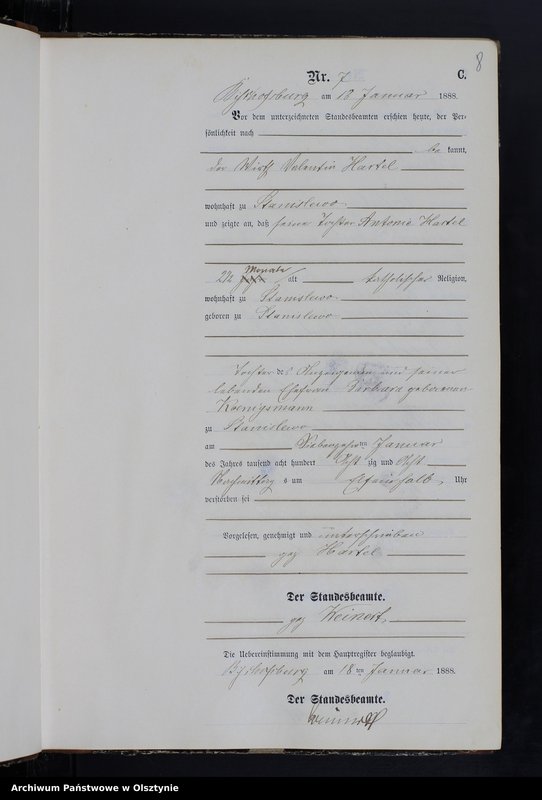 8
Nr. 7 C.
Bischofsburg am 18 Januar 1888.
Vor dem unterzeichneten Standesbeamten erschien heute, der Per-
sönlichkeit nach
be kannt,
der Wirth Valentin Hartel
wohnhaft zu Stanislewo
und zeigte an, daß seine Tochter Antonie Hartel
2½ Monate alt katholischer Religion,
wohnhaft zu Stanislewo
geboren zu Stanislewo
Tochter des Anzeigenden und seiner
lebenden Ehefrau Barbara geborenen
Koenigsmann
zu Stanislewo
am Siebenzehnten Januar
des Jahres tausend acht hundert Acht zig und Acht
Nachmittag s um Uhr
verstorben sei
Vorgelesen, genehmigt und unterschrieben
gez Hartel
Der Standesbeamte.
gez Weinert
Die Uebereinstimmung mit dem Hauptregister beglaubigt.
Bischofsburg am 18ten Januar 1888.
Der Standesbeamte.
Weinert
Archiwum Państwowe w Olsztynie